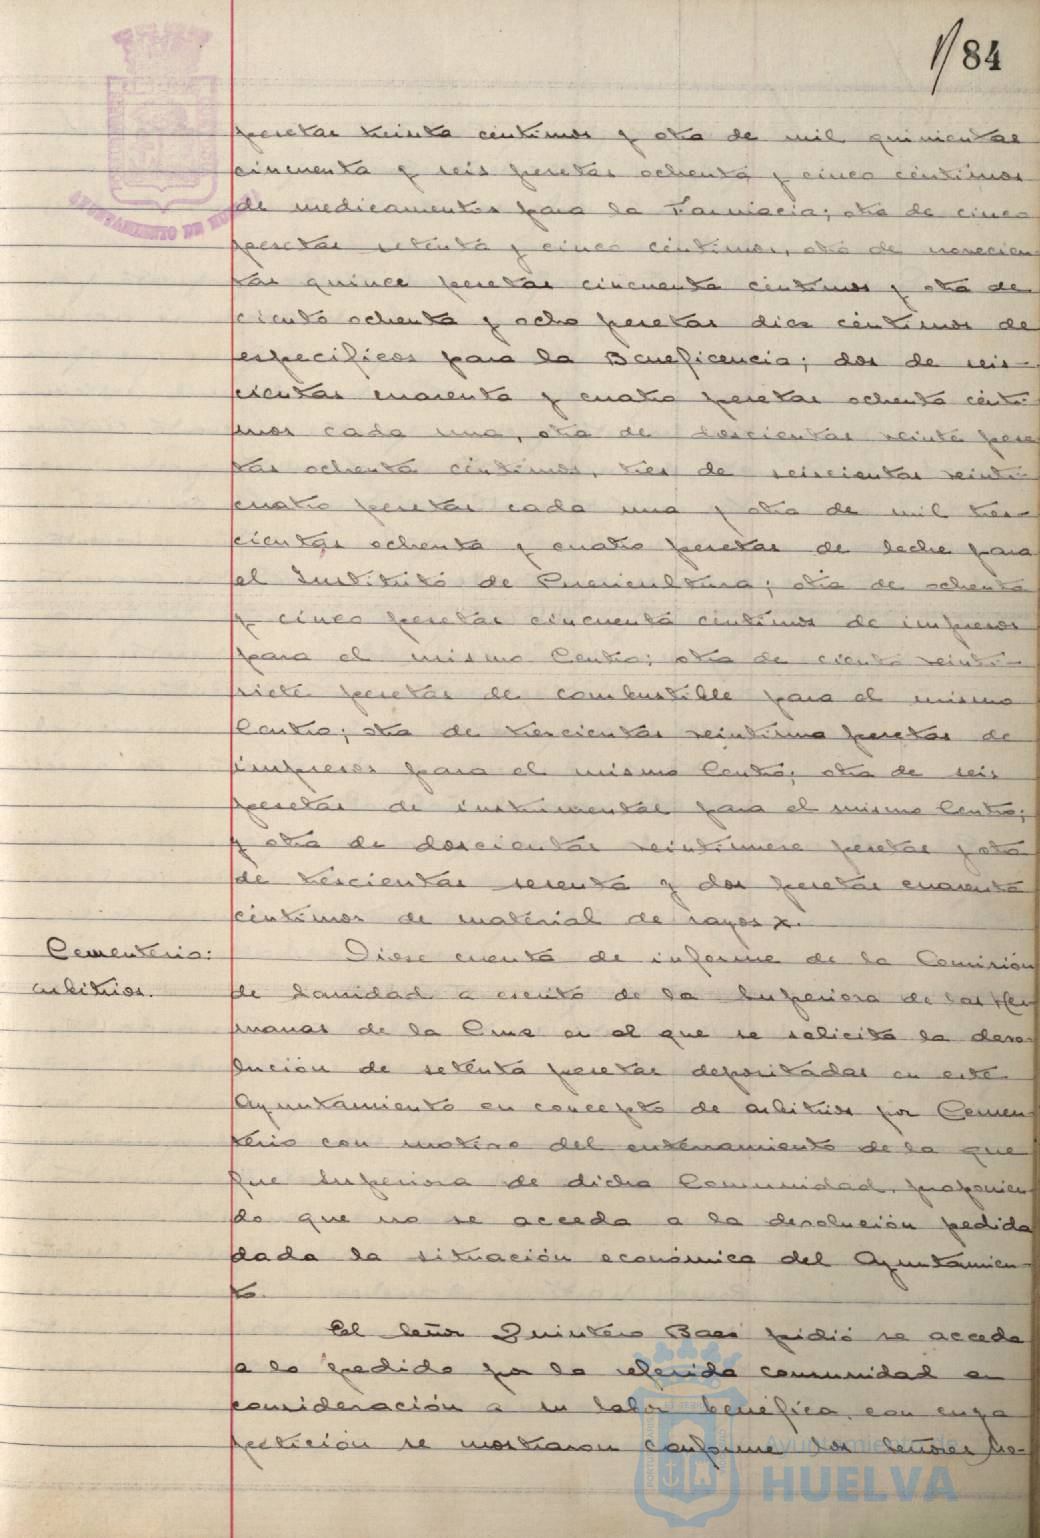 84
pesetas treinta céntimos y otra de mil quinientas
cincuenta y seis pesetas ochenta y cinco céntimos
de medicamentos para la Farmacia; otra de cinco
pesetas setenta y cinco céntimos, otra de novecien
tas quince pesetas cincuenta céntimos y otra de
ciento ochenta y ocho pesetas diez céntimos de
específicos para la Beneficencia; dos de seis-
cientas cuarenta y cuatro pesetas ochenta cénti-
mos cada una, otra de doscientas veinte pese
tas ochenta céntimos, tres de seiscientas veinti-
cuatro pesetas cada una y otra de mil tres-
cientas ochenta y cuatro pesetas de leche para
el Instituto de Puericultura; otra de ochenta
y cinco pesetas cincuenta céntimos de impresos
para el mismo Centro; otra de ciento veinti-
siete pesetas de combustible para el mismo
Centro; otra de trescientas veintiuna pesetas de
impresos para el mismo Centro; otra de seis
pesetas de instrumental para el mismo Centro;
y otra de doscientas veintinueve pesetas y otra
de trescientas sesenta y dos pesetas cuarenta
céntimos de material de rayos X.
Cementerio:
arbitrios.
Diose cuenta de informe de la Comisión
de Sanidad a escrito de la Superiora de las Her
manas de la Cruz en el que se solicita la devo-
lución de setenta pesetas depositadas en este
Ayuntamiento en concepto de arbitrios por Cemen
terio con motivo del enterramiento de la que
fue Superiora de dicha Comunidad, proponien-
do que no se acceda a la devolución pedida
dada la situación económica del Ayuntamien-
to.
El Señor Quintero Baez pidió se acceda
a lo pedido por la referida comunidad en
consideración a su labor benéfica, con cuya
petición se mostraron conforme los Señores
AYUNTAMIENTO DE
Ayuntamiento de
HUELVA